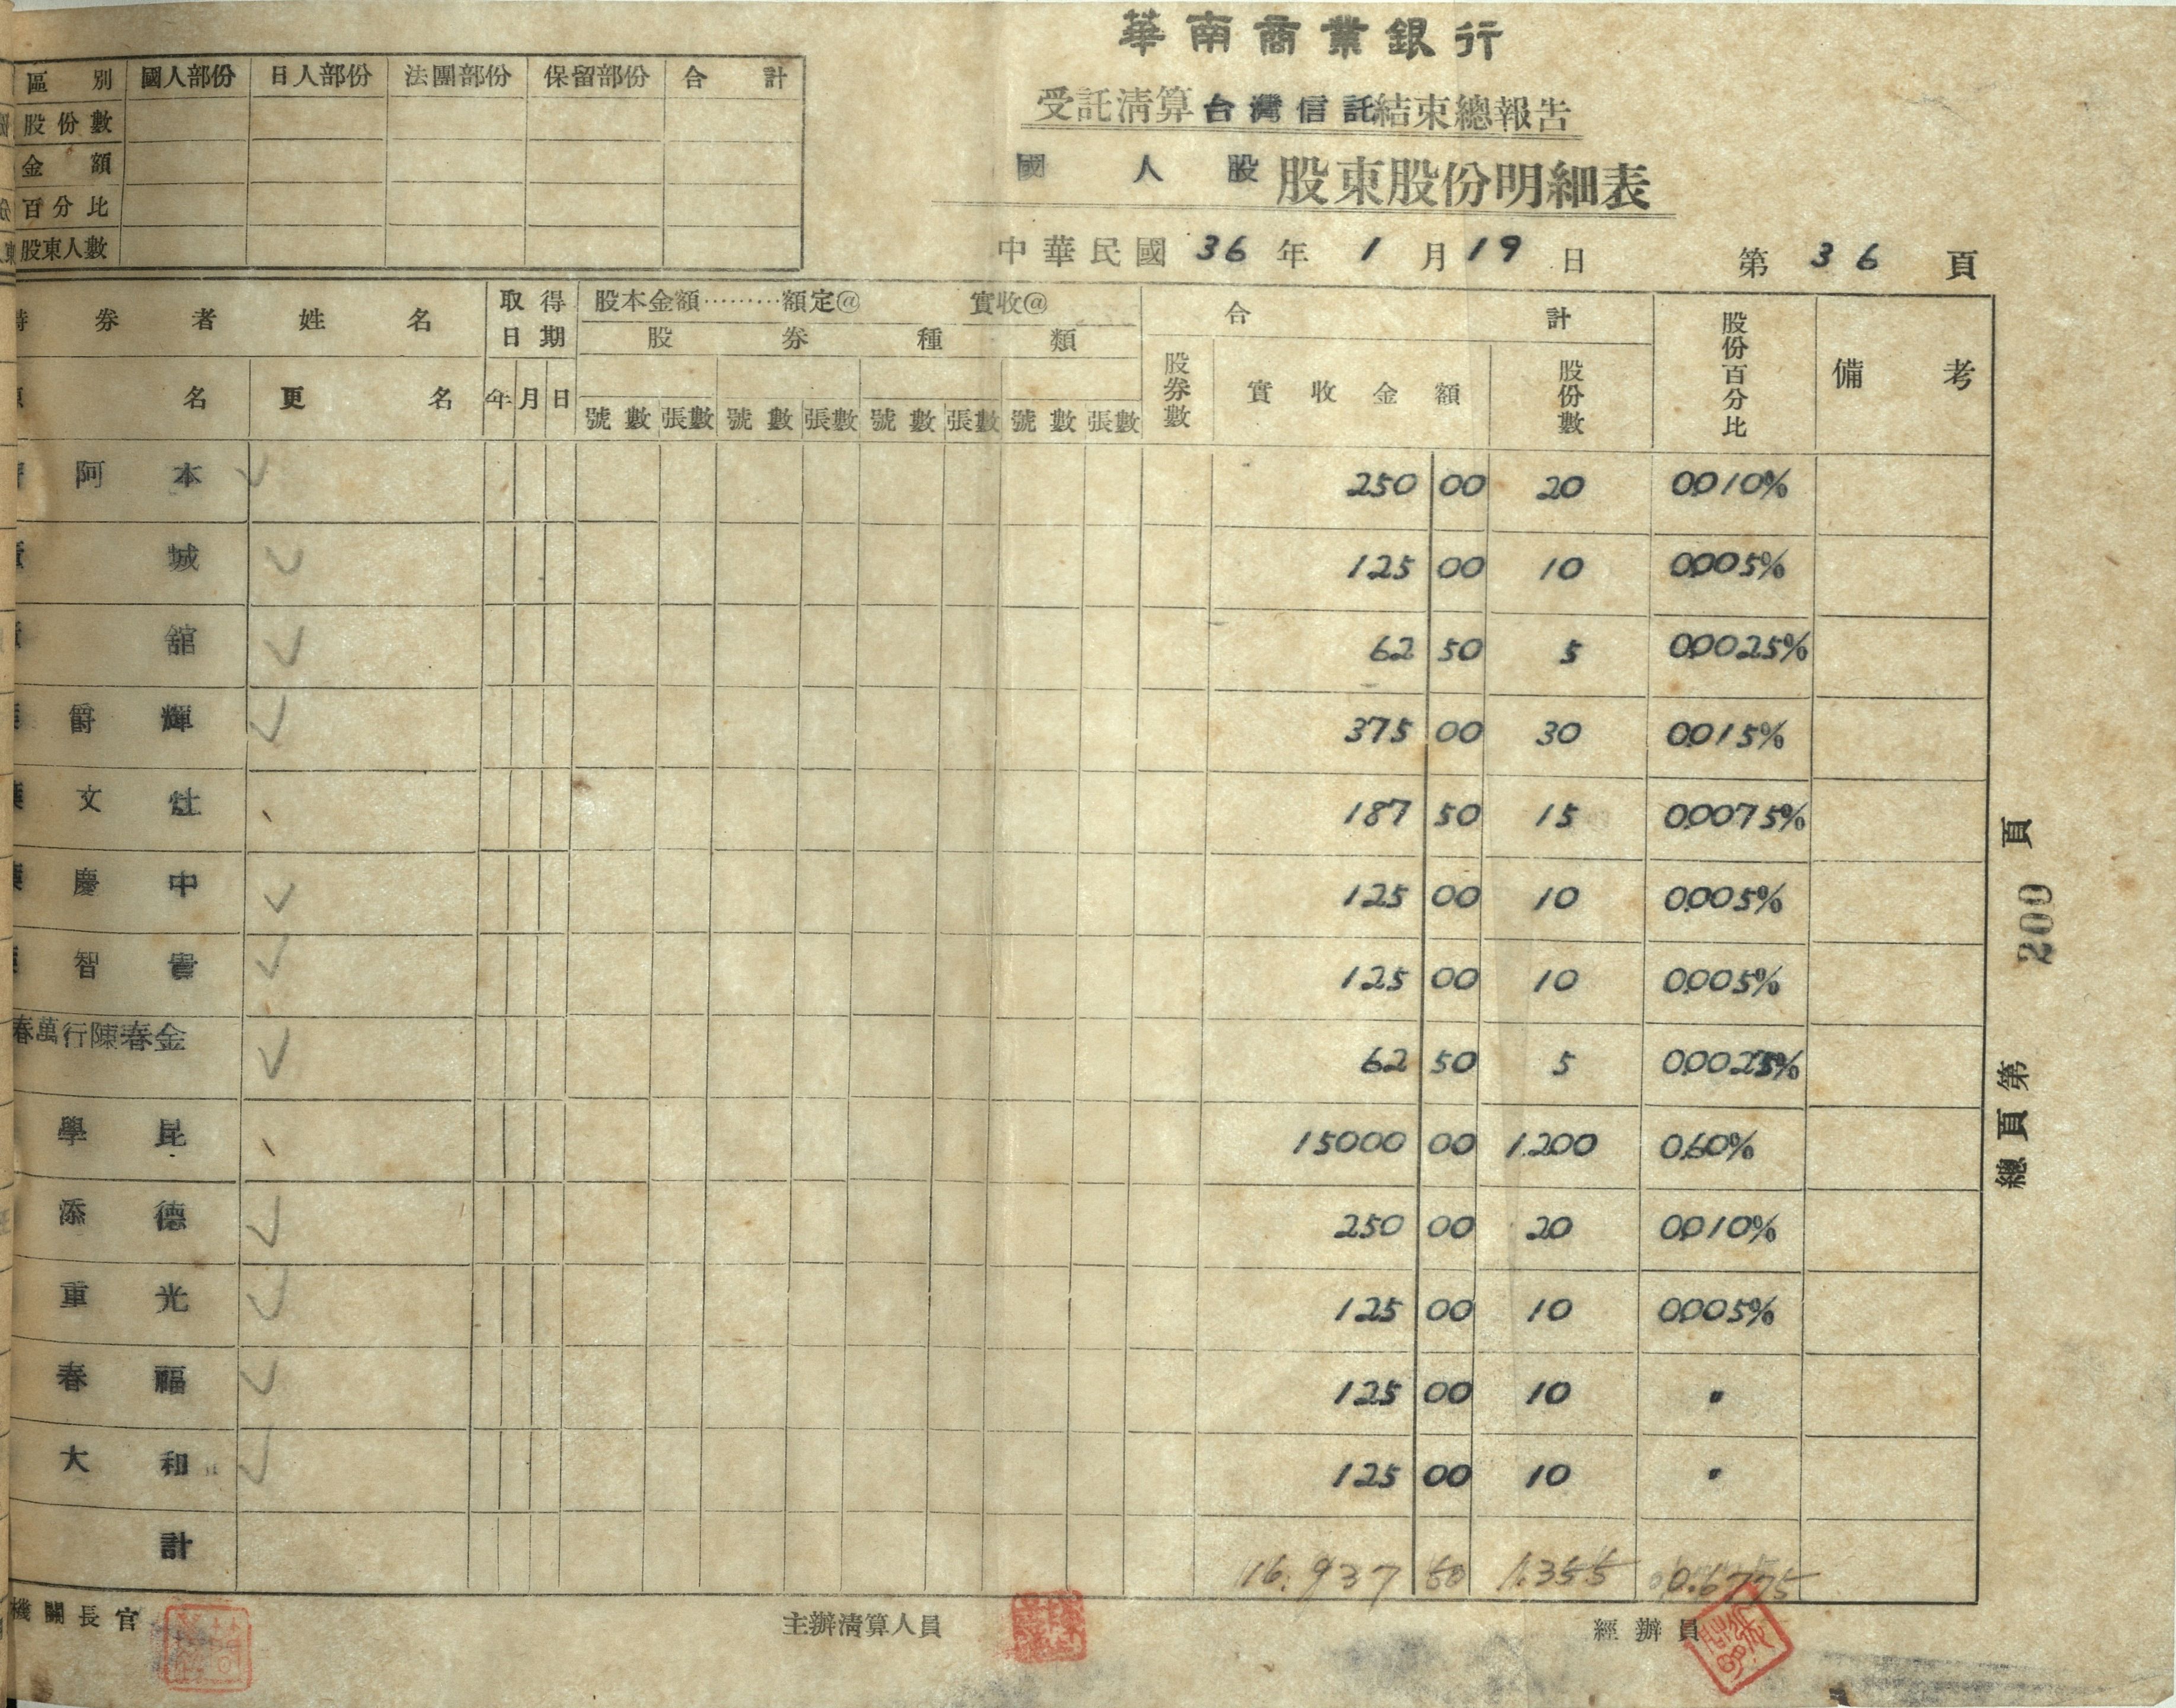 華南商業銀行
受託清算台灣信託結束總報告
國人股 股東股份明細表
中華民國 36 年 1 月 19 日 第 36 頁
區別 國人部份 日人部份 法團部份 保留部份 合計
股份數
金額
百分比
股東人數
券者姓名 取得日期 股本金額………額定@ 實收@ 合計 股份百分比 備考
股券種類
名 更名 年 月 日 股券數 實收金額 股份數
號數 張數 號數 張數 號數 張數 號數 張數
阿本 250 00 20 0.010%
城 125 00 10 0.005%
舘 62 50 5 0.0025%
爵輝 375 00 30 0.015%
文灶 187 50 15 0.0075%
慶中 125 00 10 0.005%
智貴 125 00 10 0.005%
春萬行陳春金 62 50 5 0.0025%
學昆 15000 00 1.200 0.60%
添德 250 00 20 0.010%
重光 125 00 10 0.005%
春福 125 00 10 〃
大和 125 00 10 〃
計 16.937 50 1.355 0.6775
機關長官 主辦清算人員 經辦員
總頁第 200 頁